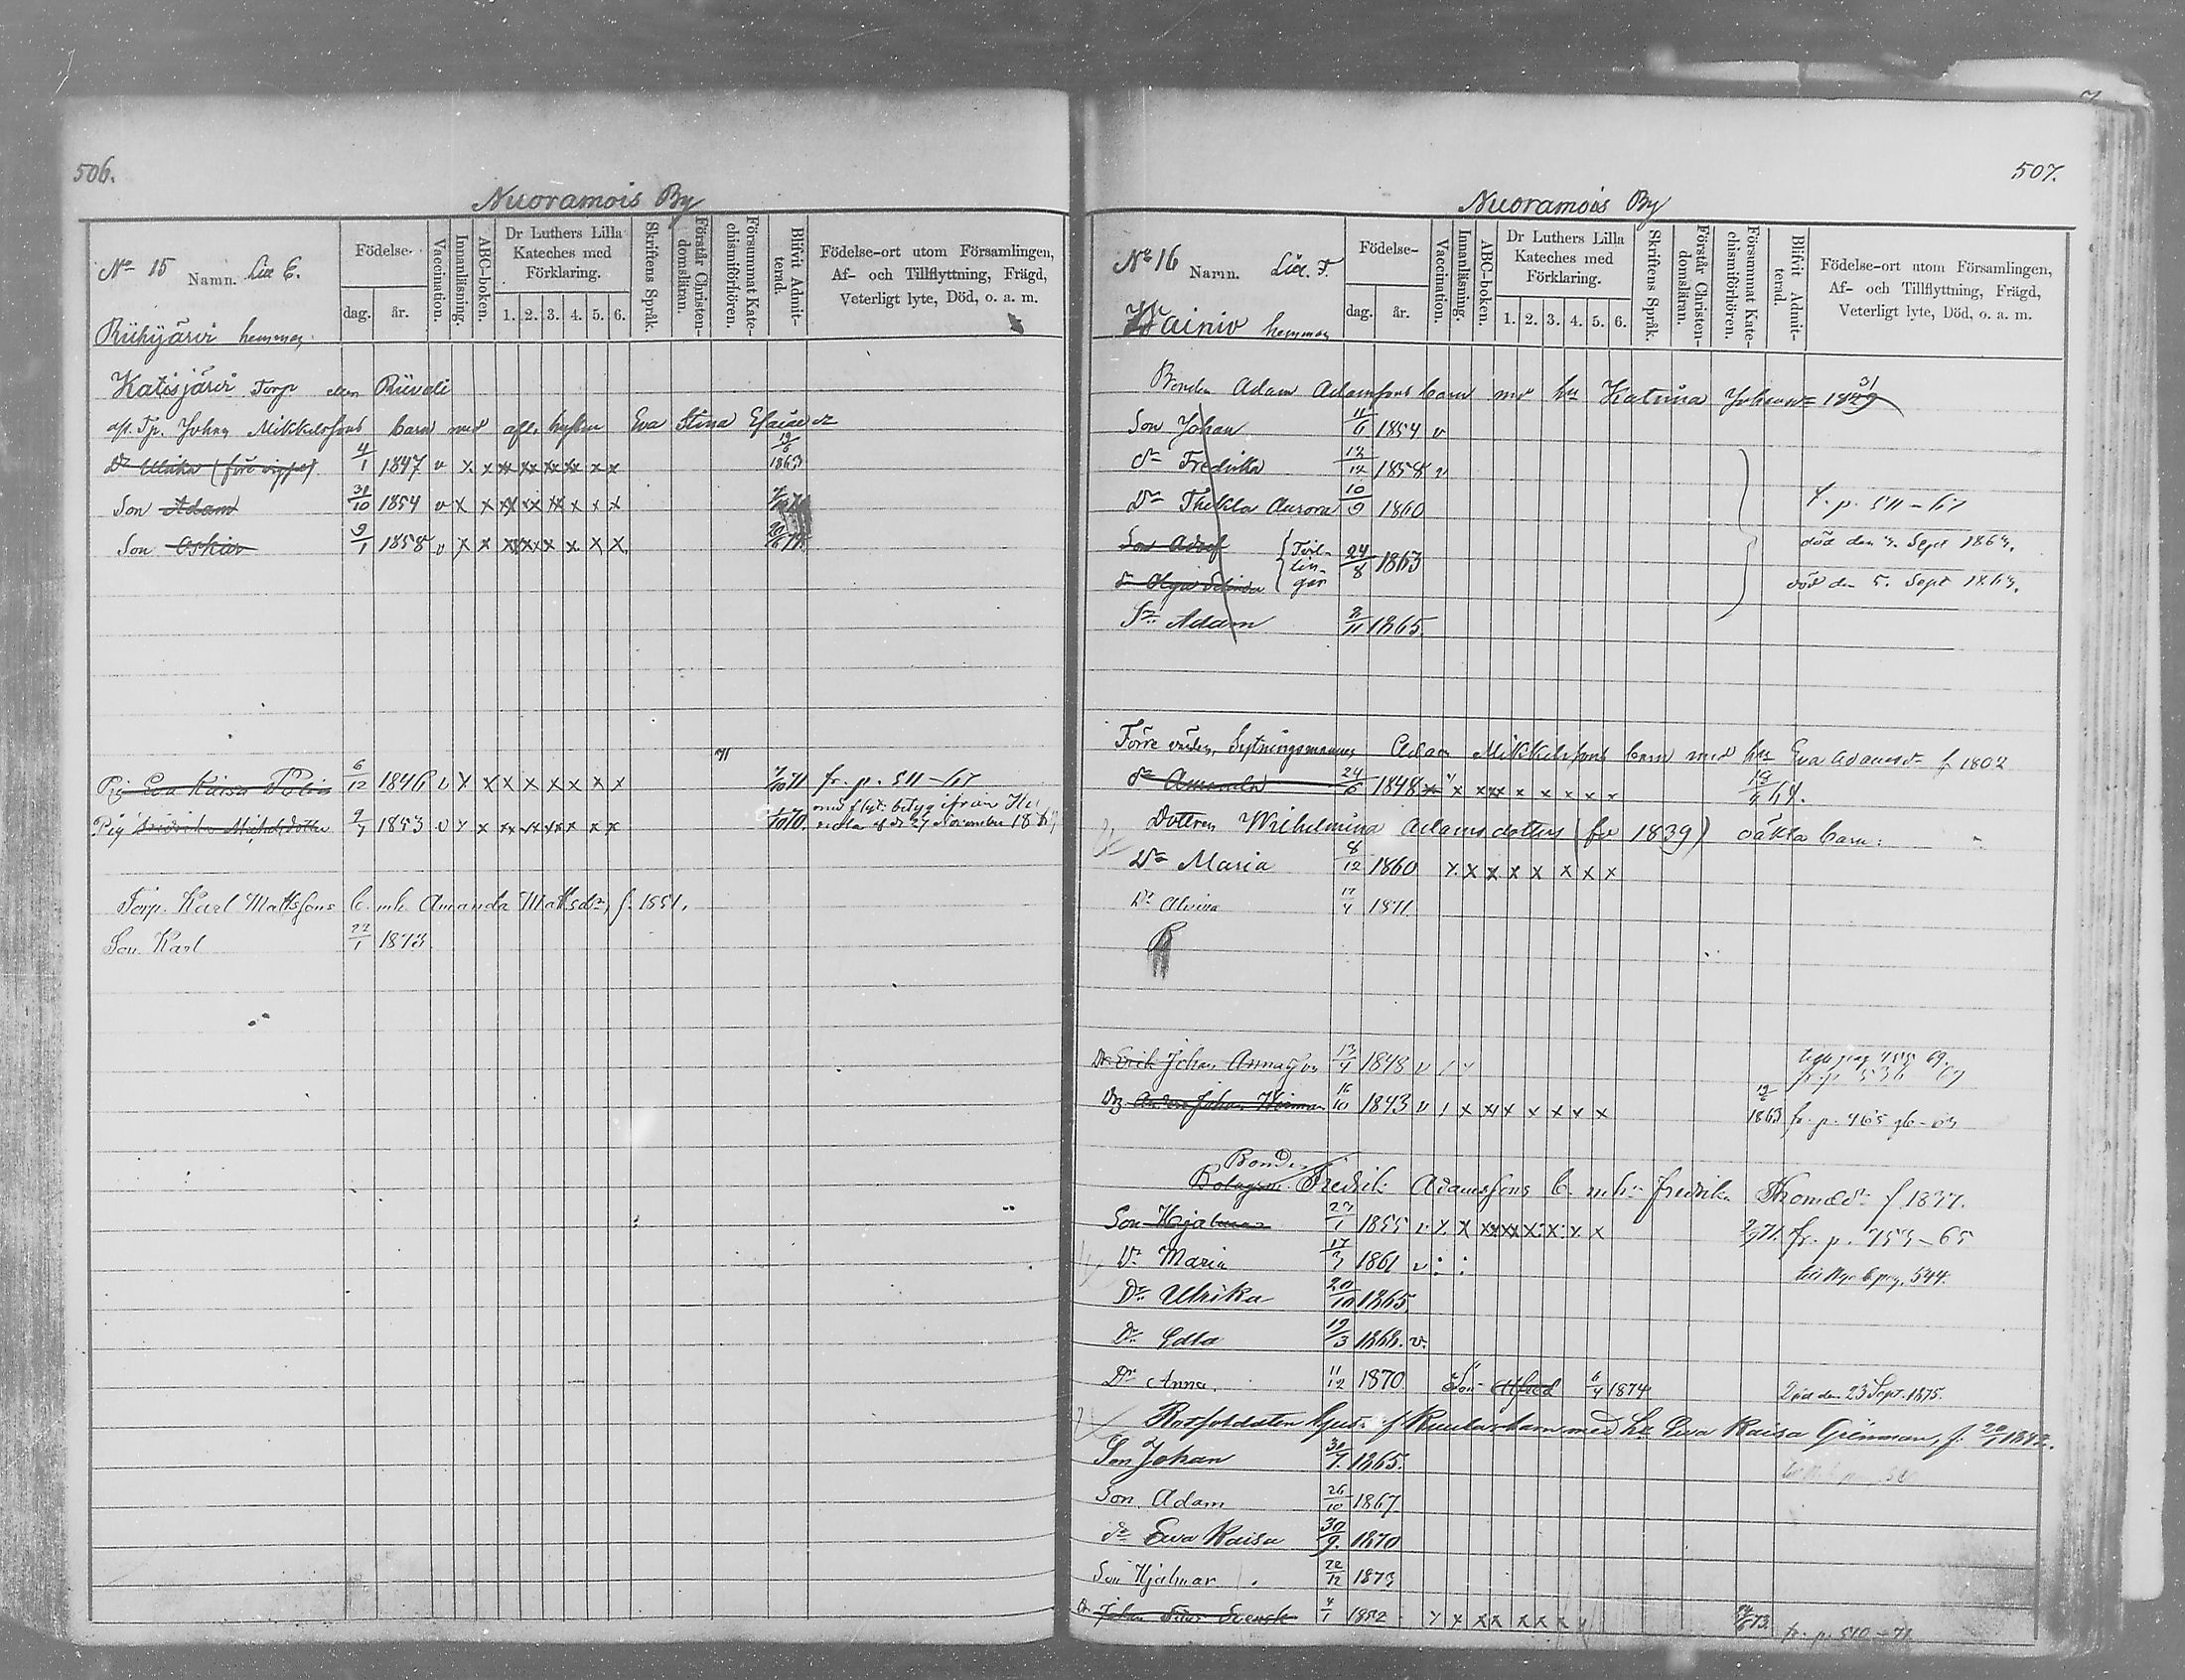 506.
Nuoramois By
No 15 Namn. Lit. E.
Födelse-
dag. år.
Vaccination.
Innanläsning.
ABC-boken.
Dr Luthers Lilla Kateches med Förklaring.
1. 2. 3. 4. 5. 6.
Skriftens Språk.
Förstår Christen-domsläran.
Försummat Kate-chismiförhören.
Blifvit Admit-terad.
Födelse-ort utom Församlingen,
Af- och Tillflyttning, Frägd,
Veterligt lyte, Död, o. a. m.
Riihijärvi hemman
Katisjärvi Torp
afl. Tp. Johan Mikkelssons barn med afl. hustru Eva Stina
Dr Ulrika 4/1 1847 v x x xx xx xx xx x x 1863
Son Adam 31/10 1854 v x x xx xx xx x x x
Son Oskar 9/1 1858 v x x xx xx x x x x
71
Pig Eva Kaisa 6/12 1846 v x x x x x x x x fr. p. 511-67
Pig Michelsdotter 1853 v x x xx xx xx x x x November
Torp. Karl Mattssons b. mh. Amanda Mattsdr, f. 1851.
Son Karl 22/1 1873
507.
Nuoramois By
No 16 Namn. Lit. F.
Födelse-
dag. år.
Vaccination.
Innanläsning.
ABC-boken.
Dr Luthers Lilla Kateches med Förklaring.
1. 2. 3. 4. 5. 6.
Skriftens Språk.
Förstår Christen-domsläran.
Försummat Kate-chismiförhören.
Blifvit Admit-terad.
Födelse-ort utom Församlingen,
Af- och Tillflyttning, Frägd,
Veterligt lyte, Död, o. a. m.
Wainio hemman
31
Bonden Adam Adamssons barn med hu Katrina 1829
Son Johan 11/6 1854 v
dr Fredrika 13/12 1858 v
Dr Thekla Aurora 10/9 1860 f. p. 511-67
Son Adolf Tvil- 24/8 1863 död den Sept 1863.
lin-
dr Olga gar död den 5. Sept 1863.
Sn Adam 1865.
Förre värden, Sytningsmannen Adam Mikkelssons barn med hu Eva Adamsdr f. 1802
dr Amanda 24/6 1848 x x xx x x x x x 64.
Dottren Wilhelmina Adamsdotters (fr 1839) oäkta barn:
Dr Maria 8/12 1860 x x x x x x x x
Dr Alvina 17/4 1871
Dr Erik Johan 13/4 1848 v
Drg Johan 16/10 1843 v x xx x x x x x 1863 fr. p. 465
Bonden
Fredrik Adamssons b. mhu Fredrika Thomædr f 1837.
Son Hjalmar 27/1 1855 v x x xx xx x x x x fr. p. 753-65
Dr Maria 17/3 1861 v till pag. 544.
Dr Ulrika 20/10 1865.
Dr Edla 19/3 1868. v.
Dr Anna. 11/12 1870. Son Alfred 6/4 1874 Död den 23 Sept. 1875.
Rotsoldaten barn med hu Eva Kaisa Grönman, f.
Son Johan 1865.
Son Adam 26/10 1867
dr Ewa Kaisa 30/9. 1870
Son Hjalmar 22/12 1873
Johan Svensk 4/1 1852 x x xx x x x x fr. p. 510-71.